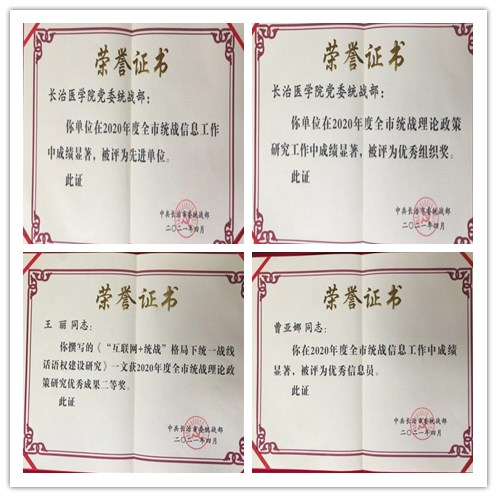 荣誉证书
长治医学院党委统战部：
你单位在2020年度全市统战信息工作
中成绩显著，被评为先进单位。
此证
中共长治市委统战部
二〇二一年四月
荣誉证书
长治医学院党委统战部：
你单位在2020年度全市统战理论政策
研究工作中成绩显著，被评为优秀组织奖。
此证
中共长治市委统战部
二〇二一年四月
荣誉证书
王 丽 同志：
你撰写的《“互联网+统战”格局下统一战线
话语权建设研究》一文获2020年度全市统战理论政
策研究优秀成果二等奖。
此证
中共长治市委统战部
二〇二一年四月
荣誉证书
曹亚娜 同志：
你在2020年度全市统战信息工作中成绩
显著，被评为优秀信息员。
此证
中共长治市委统战部
二〇二一年四月